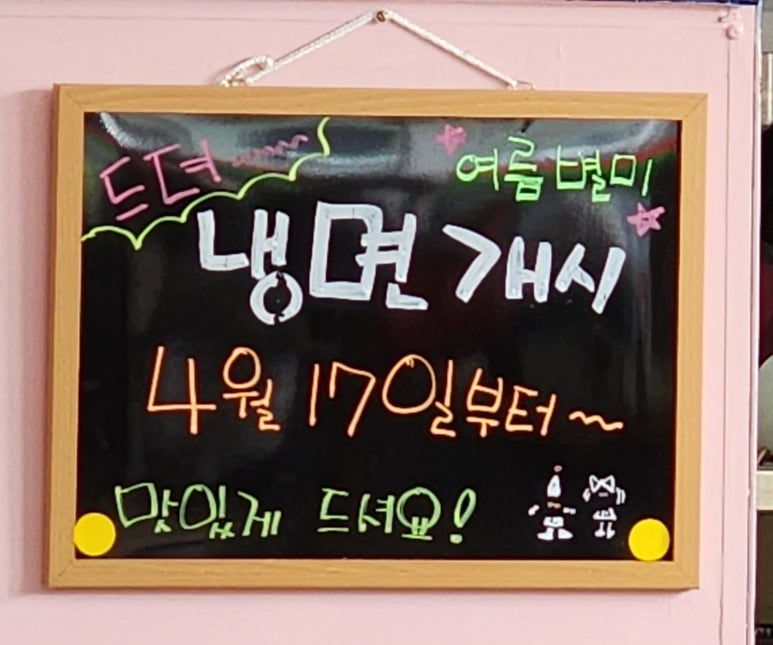 드뎌~~
여름 별미
냉면개시
4월 17일부터~
맛있게 드셔요!